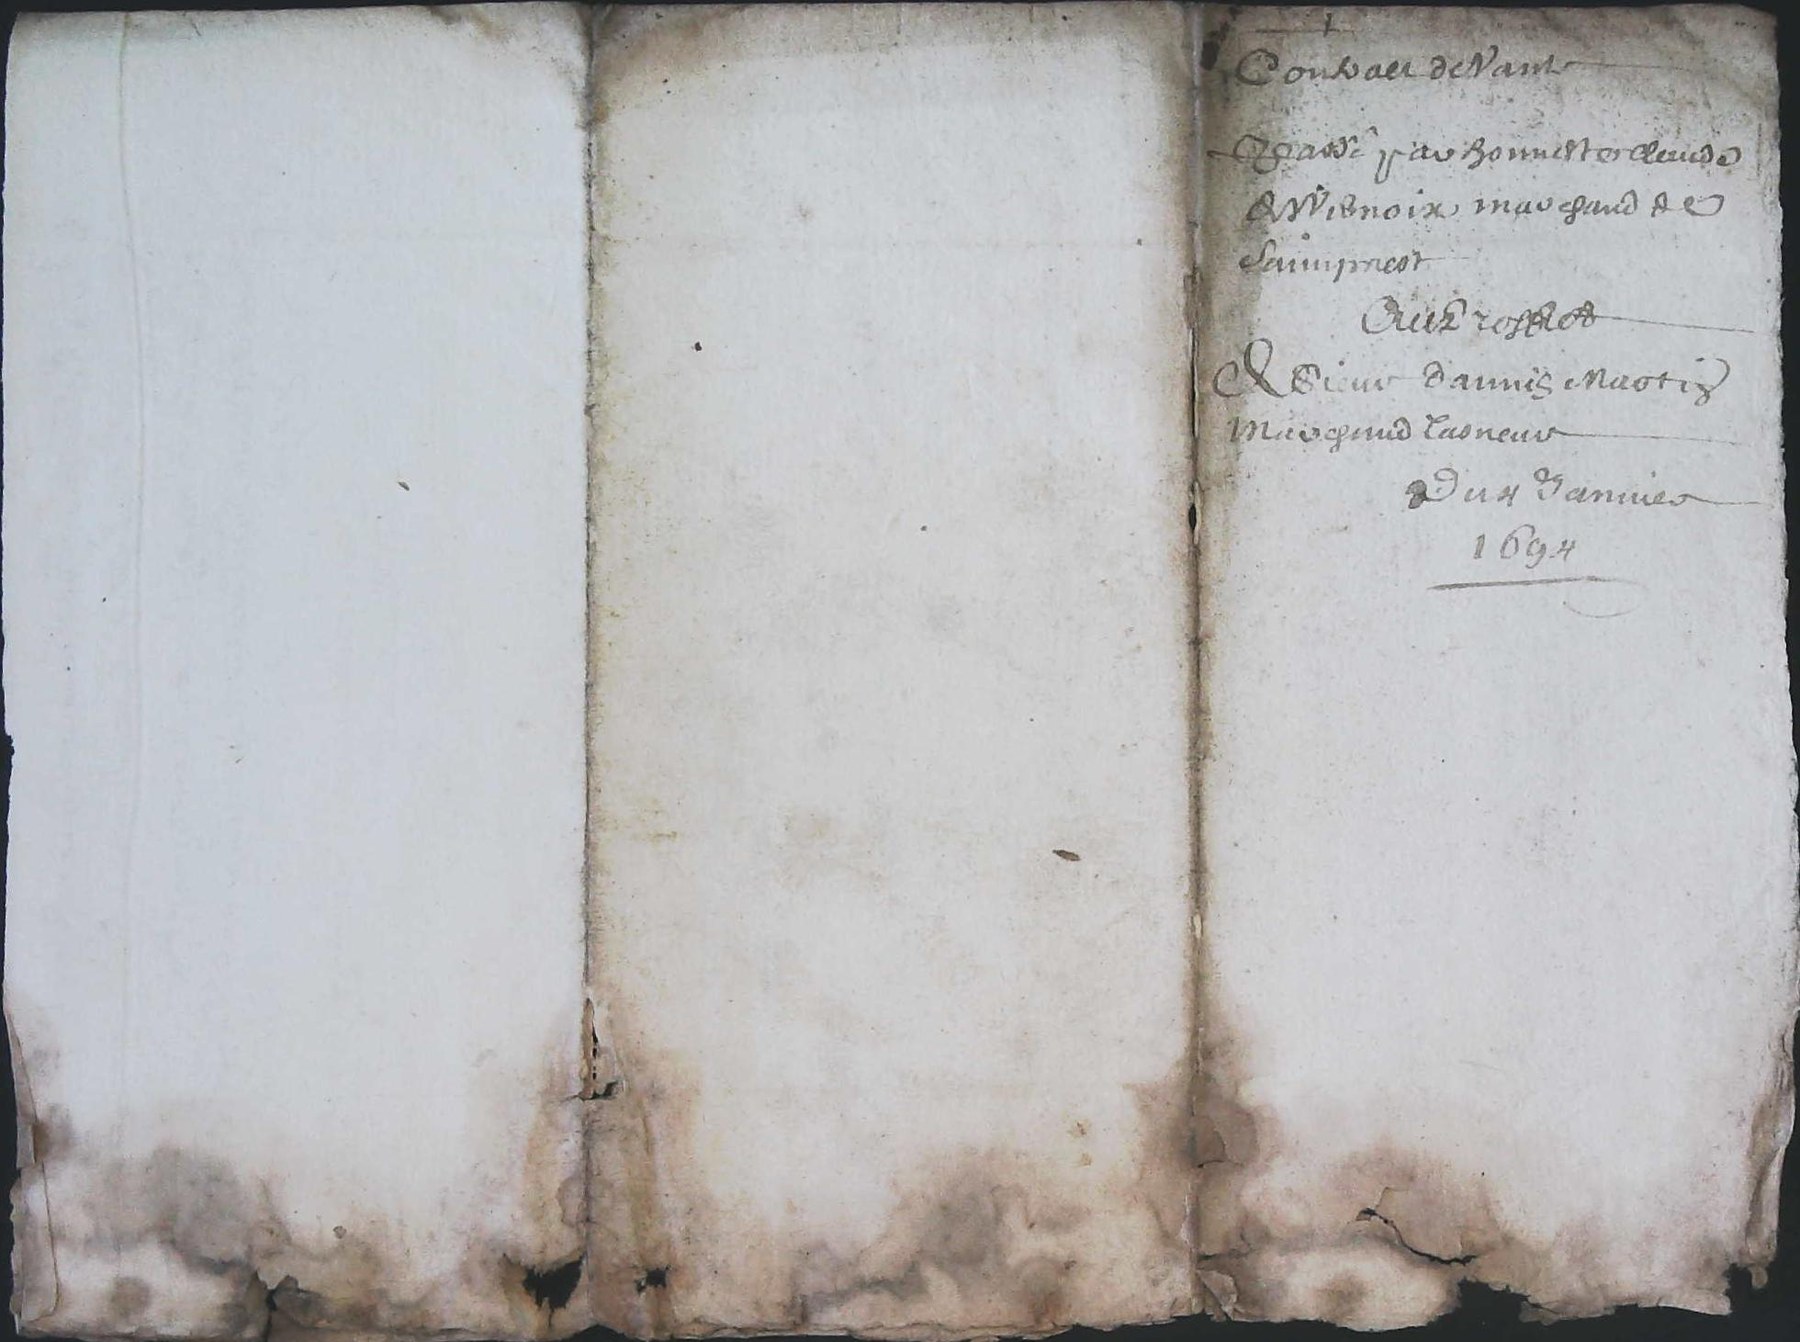 Contract de Vant
Passé par honneste Claude
marchand de
Sainprest
Au proffict
Sieur dannis Martin
Marchand taneur
Du 4 Janvier
1694